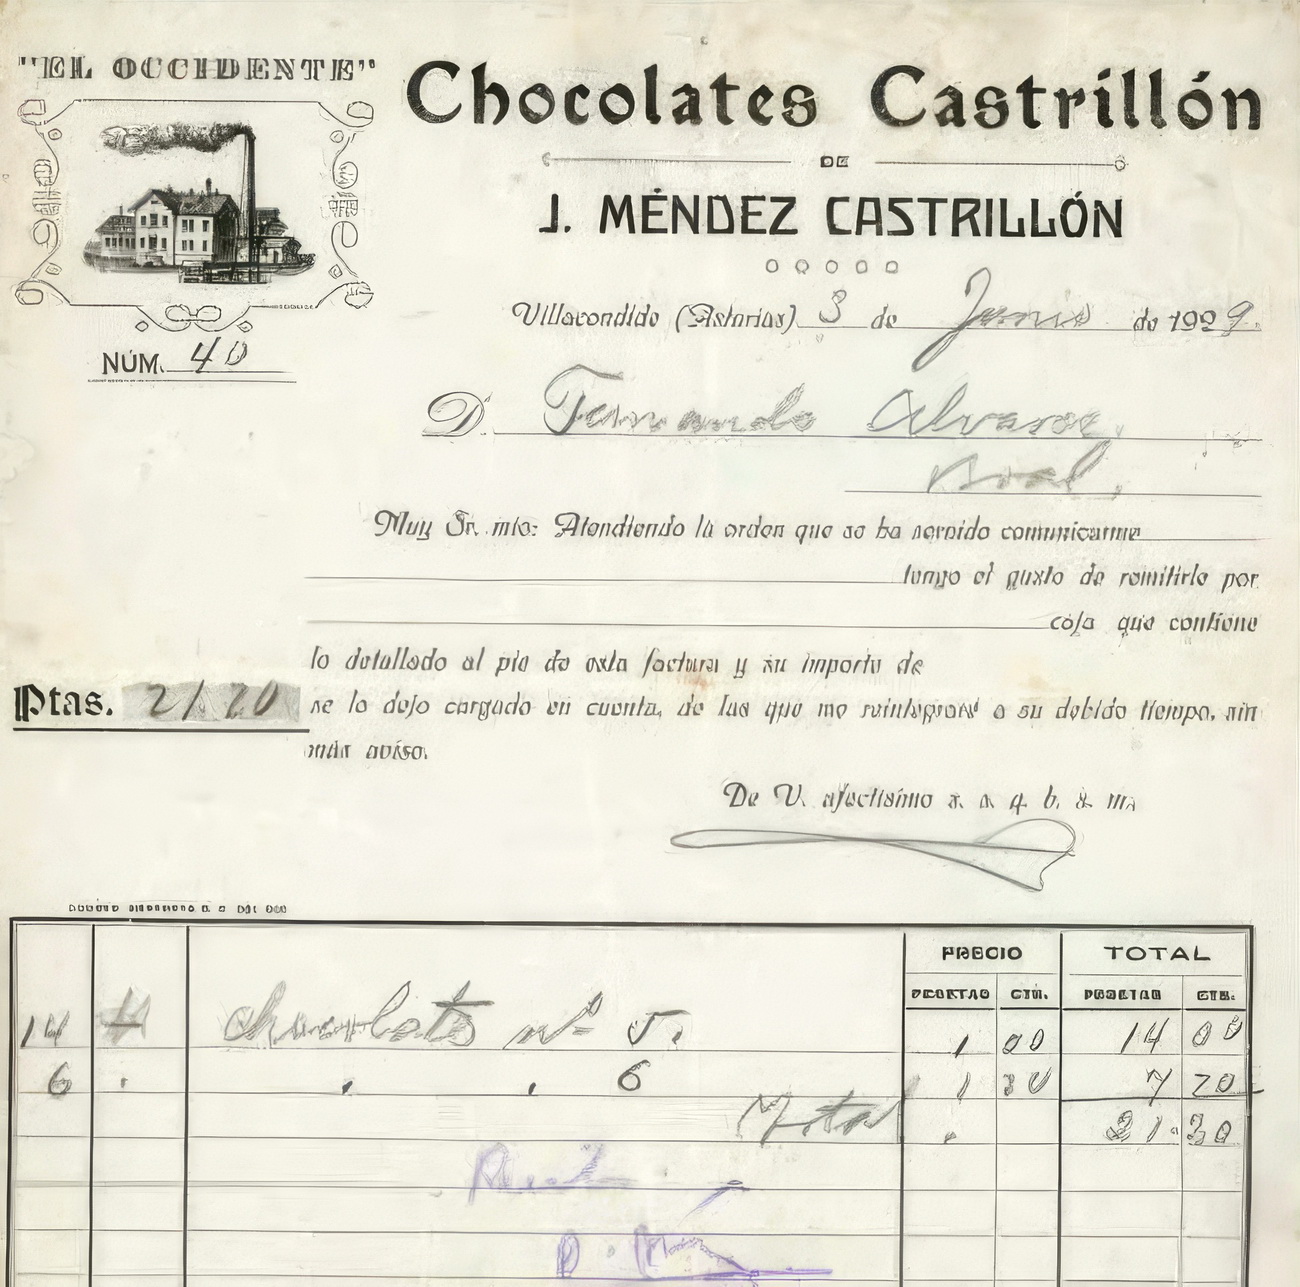 "EL OCCIDENTE"
Chocolates Castrillón
DE
J. MÉNDEZ CASTRILLÓN
NÚM. 40
Villacondide (Asturias) 3 de Junio de 1929.
D. Fernando Alvarez
Boal.
Muy Sr. mío: Atendiendo la orden que se ha servido comunicarme
tengo el gusto de remitirle por
caja que contiene
lo detallado al pie de esta factura y su importe de
Ptas. 21'20 se lo dejo cargado en cuenta, de las que me reintegrará a su debido tiempo, sin
más aviso.
De V. afectísimo s. s. q. b. s. m.
PRECIO TOTAL
PESETAS CTS. PESETAS CTS.
14 chocolate nº 5. 1 00 14 00
6 " " " 6 1 20 7 20
Total 21.20